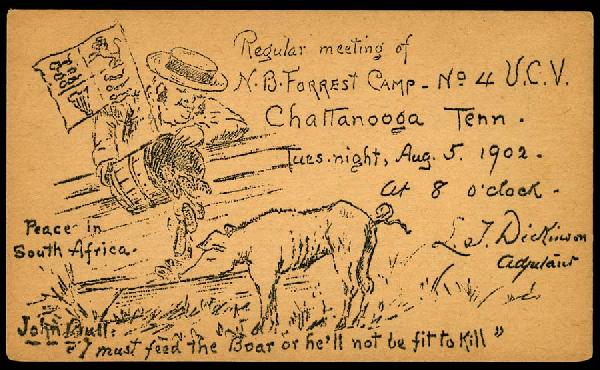 Regular meeting of
N. B. FORREST CAMP - No 4 U.C.V.
Chattanooga Tenn.
Tues. night, Aug. 5. 1902.
At 8 o'clock.
L. T. Dickinson
Adjutant
Peace in
South Africa.
John Bull:
"I must feed the Boar or he'll not be fit to kill"